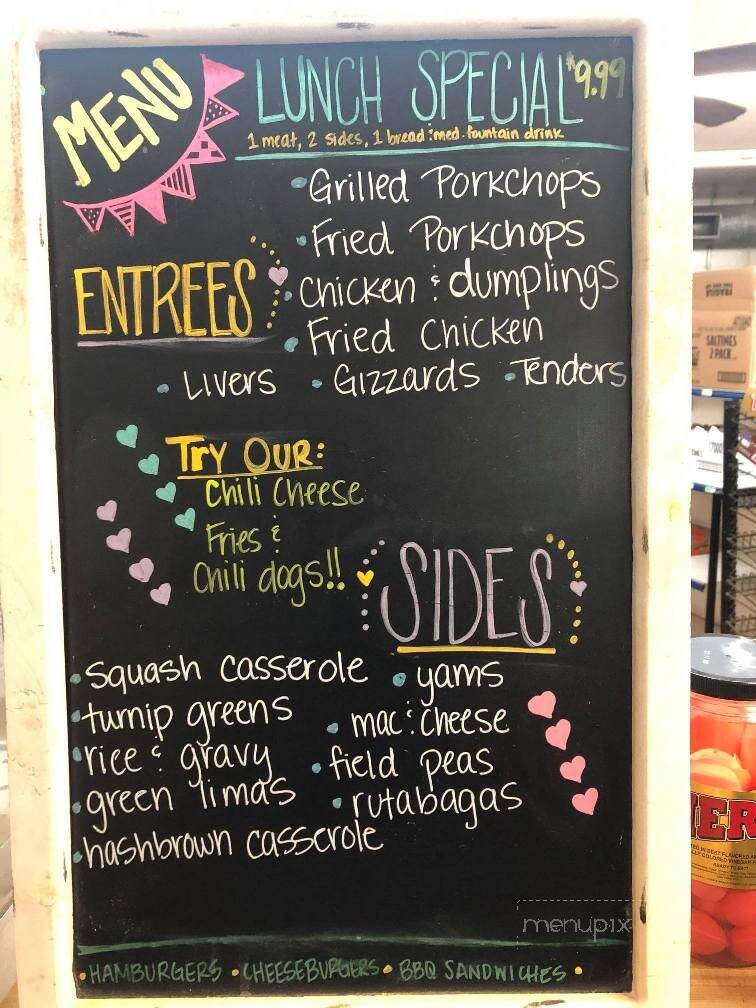 MENU
LUNCH SPECIAL $9.99
1 meat, 2 sides, 1 bread & med. fountain drink
ENTREES
• Grilled Porkchops
• Fried Porkchops
• Chicken & dumplings
• Fried Chicken
• Livers • Gizzards • Tenders
Try Our:
Chili Cheese
Fries &
Chili dogs!!
SIDES
• squash casserole • yams
• turnip greens • mac & cheese
• rice & gravy • field peas
• green limas • rutabagas
• hashbrown casserole
• HAMBURGERS • CHEESEBURGERS • BBQ SANDWICHES •
menupix
SALTINES
2 PACK